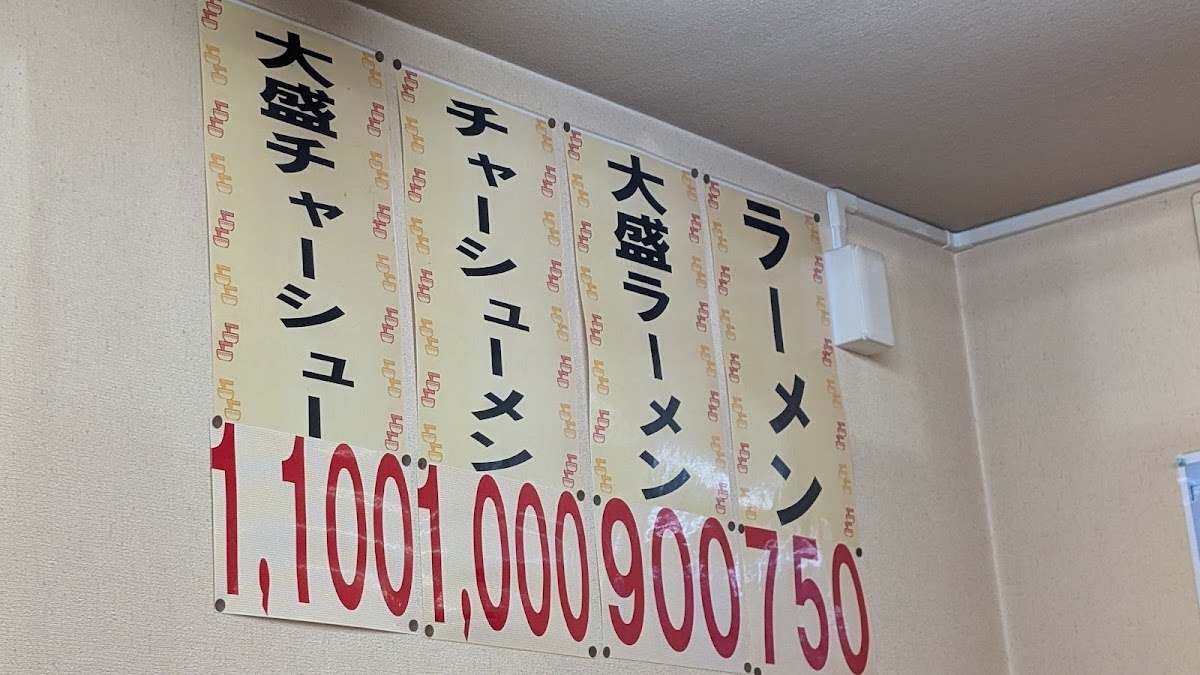 ラーメン
750
大盛ラーメン
900
チャーシューメン
1,000
大盛チャーシュー
1,100